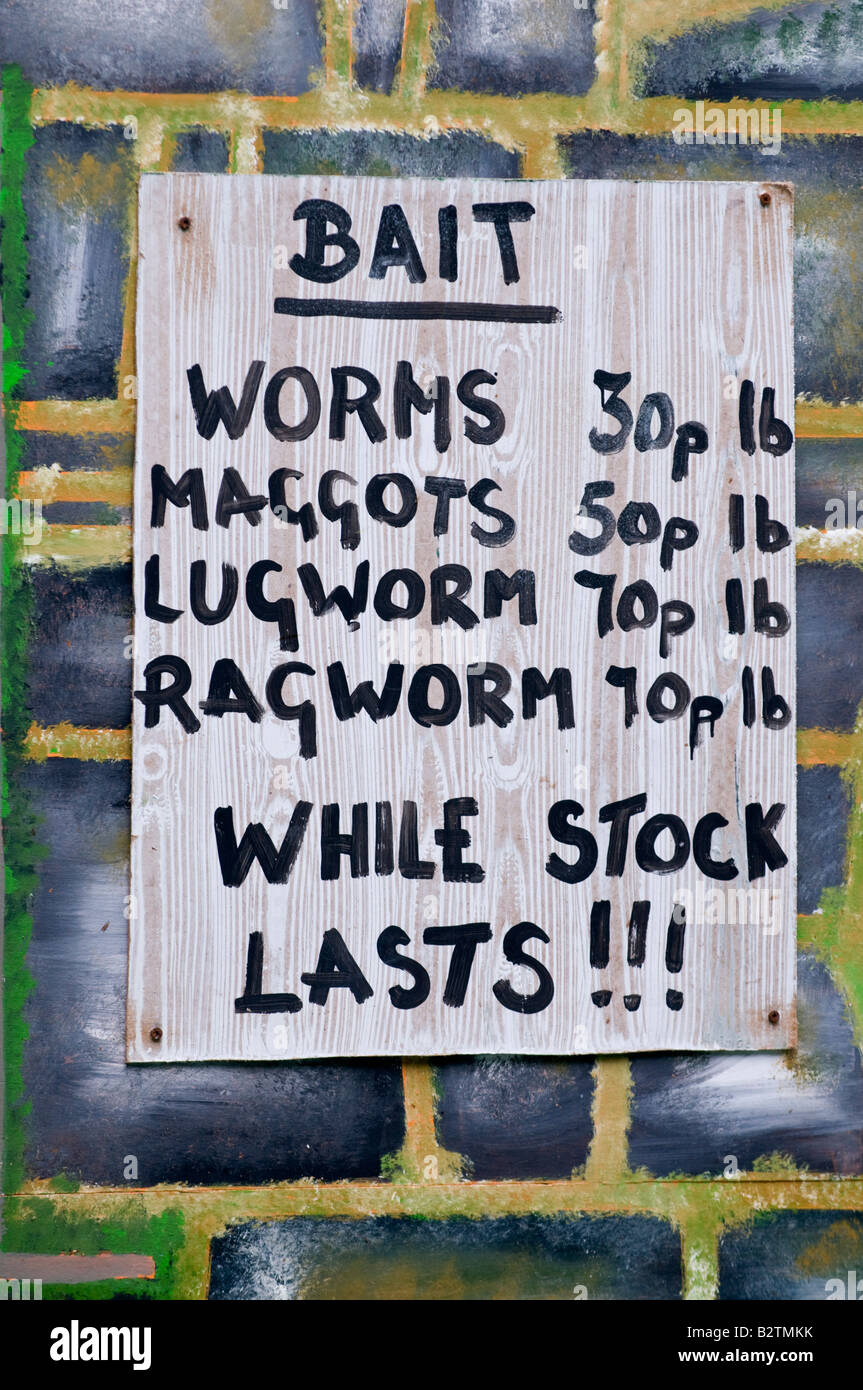 BAIT
WORMS 30p lb
MAGGOTS 50p lb
LUGWORM 70p lb
RAGWORM 70p lb
WHILE STOCK
LASTS !!!
a
alamy
a
alamy
Image ID: B2TMKK
www.alamy.com